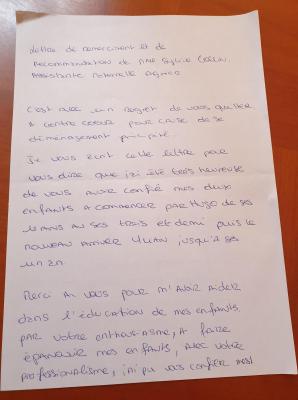 Lettre de remerciment et de
Recommandation de Mme Sylvie
Assistante Maternelle Agréée
C'est avec un regret de vous quitter
A contre coeur pour cause de
déménagement précipité.
Je vous écrit cette lettre pour
vous dire que j'ai été très heureuse
de vous avoir confié mes deux
enfants A commencer par Hugo de ses
ANS AU SES trois et demi puis le
nouveau arriver jusqu'à ses
un an.
Merci A vous pour m'Avoir Aider
dans l'éducation de mes enfants.
PAR Votre enthousiasme, A faire
épanouir mes enfants, Avec votre
professionalisme, j'ai pu vous confier mes